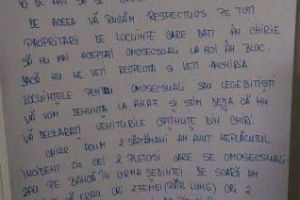 DE ACEEA VĂ RUGĂM RESPECTUOS PE TUTI
PROPRITARII DE LOCUINTE CARE DATI ÎN CHIRIE
SĂ NU MAI ACEPTATI OMOSECSUALI LA NOI ÎN BLOC.
DACĂ NU NE VETI RESPECTA SI VETI ÎNCHIRIA
LOCUINTELE PENTRU OMOSECSUALI SAU LEGEBITISTI
VĂ VOM DENUNTA LA A.N.A.T. SI STIM DEJA CĂ NU
VĂ DECLARATI VENITURILE OPTINUTE DIN CHIRI.
CHIAR ACUM 2 SĂPTĂMÂNI AM AVUT NEPLĂCUTUL
INCIDENT CU CEI 2 PLETOSI CARE SE OMOSECSUALI-
ZAU PE BANCĂ ÎN URMA SEDINTEI DE SCARĂ AM
CĂ ERAU ORI 2 FEMEI (PĂR LUNG) ORI 2